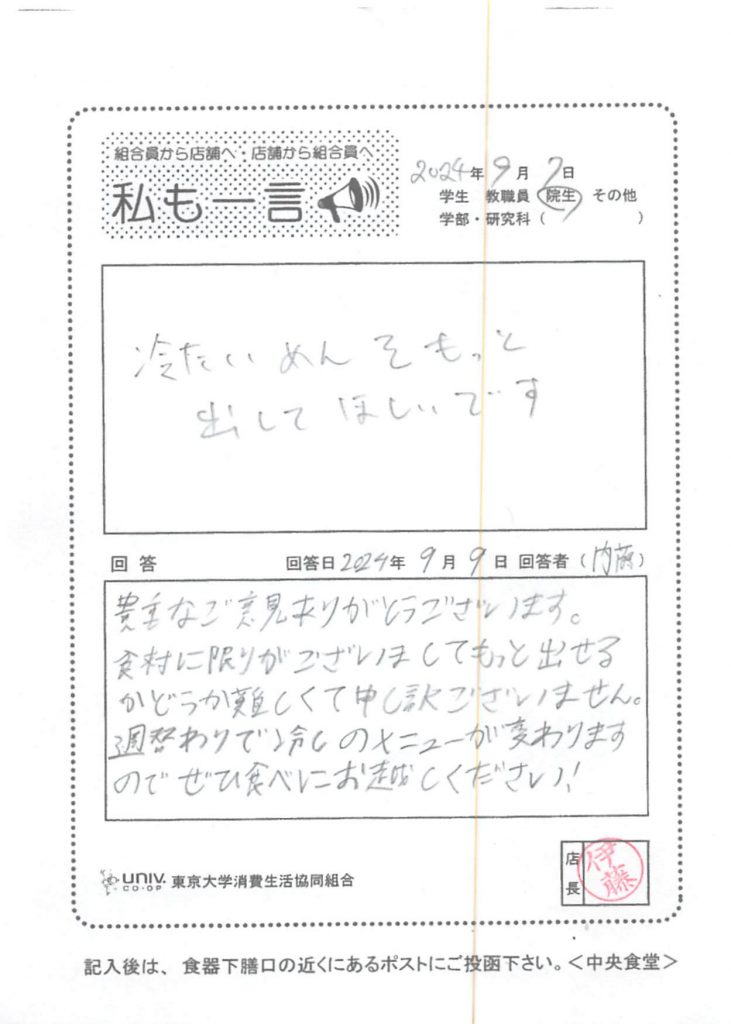 組合員から店舗へ・店舗から組合員へ
私も一言
2024年9月7日
学生 教職員 院生 その他
学部・研究科( )
冷たいめんをもっと
出してほしいです
回答 回答日2024年9月9日 回答者(内藤)
貴重なご意見ありがとうございます。
食材に限りがございましてもっと出せる
かどうか難しくて申し訳ございません。
週替わりで冷しのメニューが変わります
のでぜひ食べにお越しください!
店長
伊藤
UNIV. CO-OP 東京大学消費生活協同組合
記入後は、食器下膳口の近くにあるポストにご投函下さい。<中央食堂>